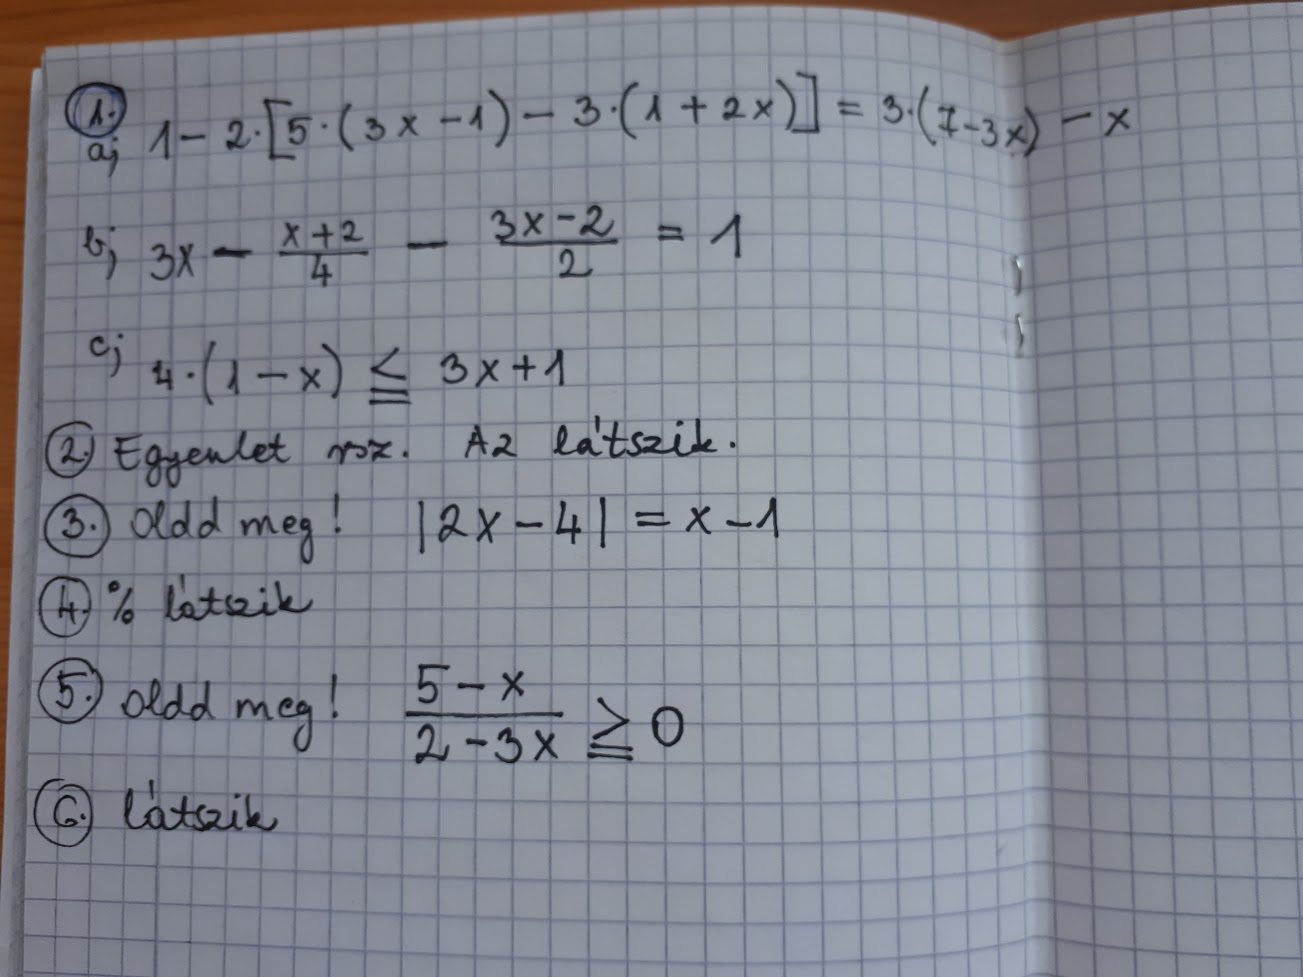 1.
a) 1 - 2·[5·(3x - 1) - 3·(1 + 2x)] = 3·(7 - 3x) - x
b) 3x - (x+2)/4 - (3x-2)/2 = 1
c) 4·(1 - x) ≦ 3x + 1
2. Egyenlet rsz. Az látszik.
3. Oldd meg! |2x - 4| = x - 1
4. % látszik
5. Oldd meg! (5 - x)/(2 - 3x) ≧ 0
6. látszik